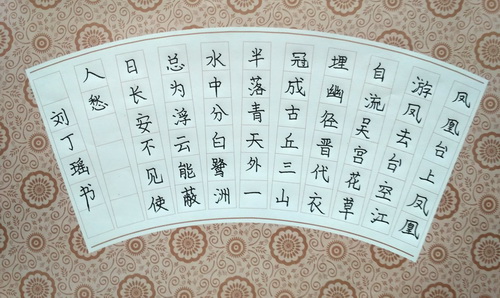 凤凰台上凤凰
游凤去台空江
自流吴宫花草
埋幽径晋代衣
冠成古丘三山
半落青天外一
水中分白鹭洲
总为浮云能蔽
日长安不见使
人愁
刘丁瑶书